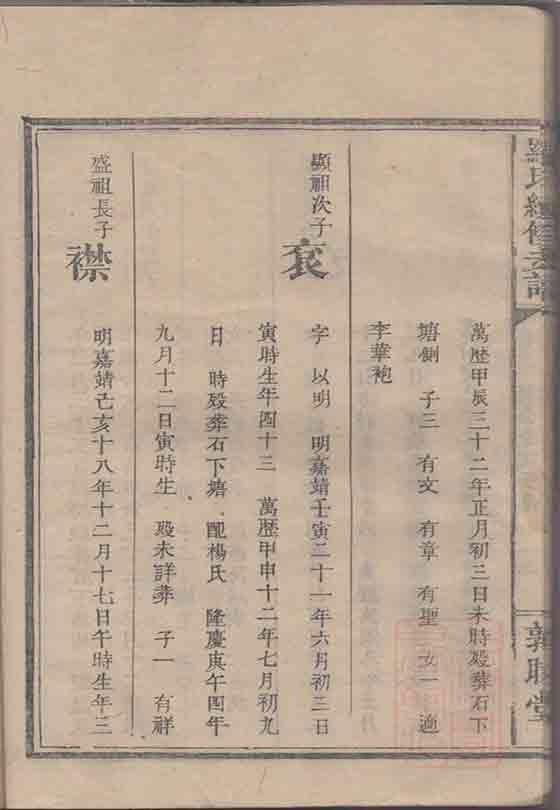 羅氏續修支譜
敦睦堂
萬歷甲辰三十二年正月初三日未時殁葬石下
塘側 子三 有文 有章 有聖 女一 適
李華袍
顯祖次子
袞
字 以明 明嘉靖壬寅二十一年六月初三日
寅時生年四十三 萬歷甲申十二年七月初九
日 時殁葬石下塘 配楊氏 隆慶庚午四年
九月十二日寅時生 殁未詳葬 子一 有祥
盛祖長子
襟
明嘉靖己亥十八年十二月十七日午時生年三